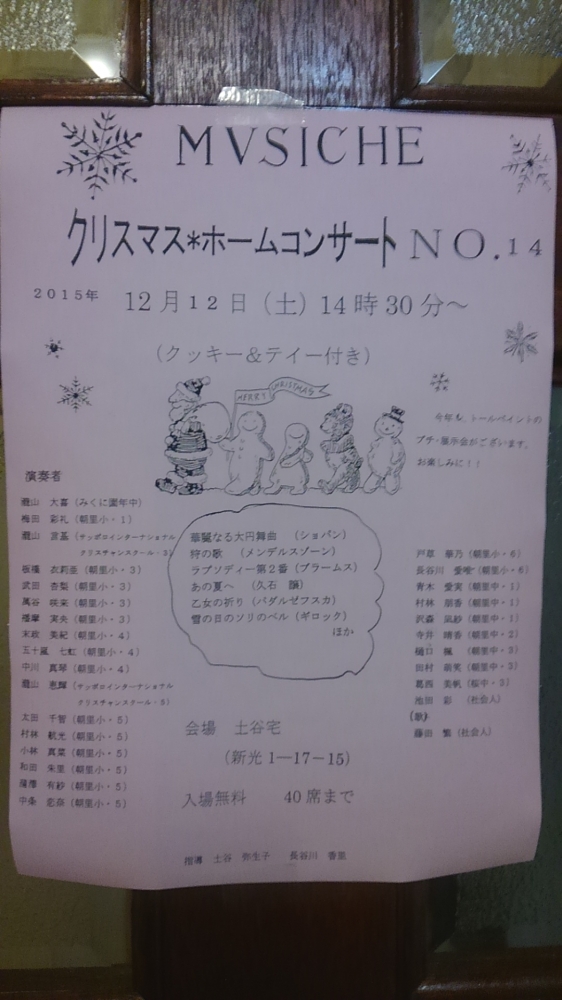 MVSICHE
クリスマス*ホームコンサート NO.14
2015年 12月12日（土）14時30分～
（クッキー＆テイー付き）
MERRY CHRISTMAS
今年も、トールペイントの
プチ・展示会がございます。
お楽しみに！！
演奏者
瀧山 大喜（みくに園年中）
梅田 彩礼（朝里小・1）
瀧山 言基（サッポロインターナショナル
クリスチャンスクール・3）
板橋 衣莉亜（朝里小・3）
武田 杏梨（朝里小・3）
萬谷 咲来（朝里小・3）
播摩 実央（朝里小・3）
末政 美紀（朝里小・4）
五十嵐 七虹（朝里小・4）
中川 真琴（朝里小・4）
瀧山 恵輝（サッポロインターナショナル
クリスチャンスクール・5）
太田 千智（朝里小・5）
村林 航光（朝里小・5）
小林 真菜（朝里小・5）
和田 朱里（朝里小・5）
蒲澤 有紗（朝里小・5）
中条 恋奈（朝里小・5）
華麗なる大円舞曲 （ショパン）
狩の歌 （メンデルスゾーン）
ラプソディー第2番（ブラームス）
あの夏へ （久石 譲）
乙女の祈り（バダルゼフスカ）
雪の日のソリのベル（ギロック）
ほか
戸草 華乃（朝里小・6）
長谷川 愛唯（朝里小・6）
青木 愛実（朝里中・1）
村林 朋香（朝里中・1）
沢森 凪紗（朝里中・1）
寺井 晴香（朝里中・2）
樋口 楓（朝里中・3）
田村 萌美（朝里中・3）
葛西 美帆（桜中・3）
池田 彩 （社会人）
（歌）
藤田 繁（社会人）
会場 土谷宅
（新光1―17－15）
入場無料 40席まで
指導 土谷 弥生子 長谷川 香里